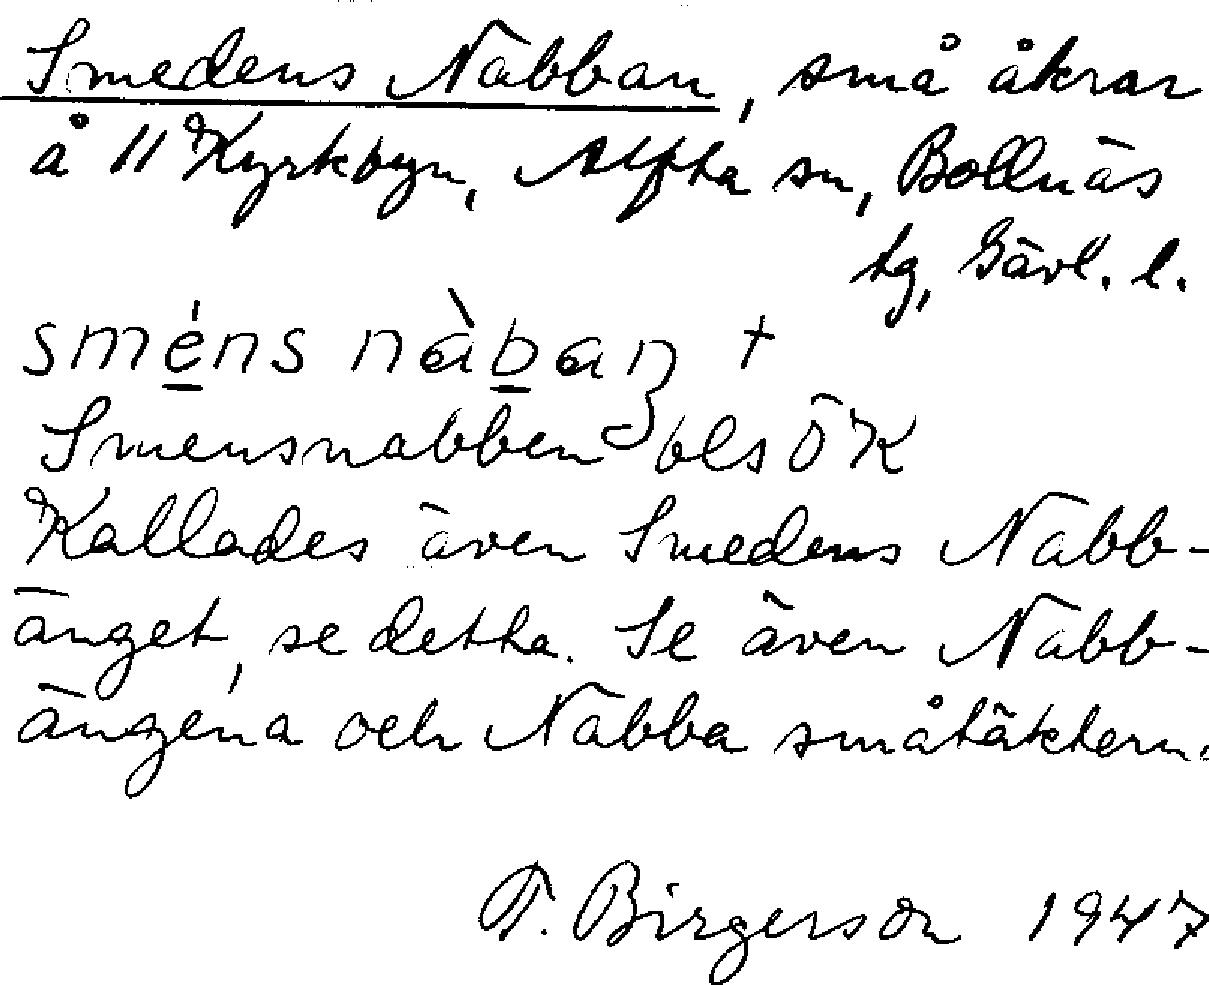 Smedens Nabban, små åkrar
å 11 Kyrkbyn, Alfta sn, Bollnäs
tg, Gävl. l.
sméns nàban +
Smensnabben bls ÖK
Kallades även Smedens Nabb-
änget, se detta. Se även Nabb-
ängena och Nabba småtäktern.
T. Birgerson 1947